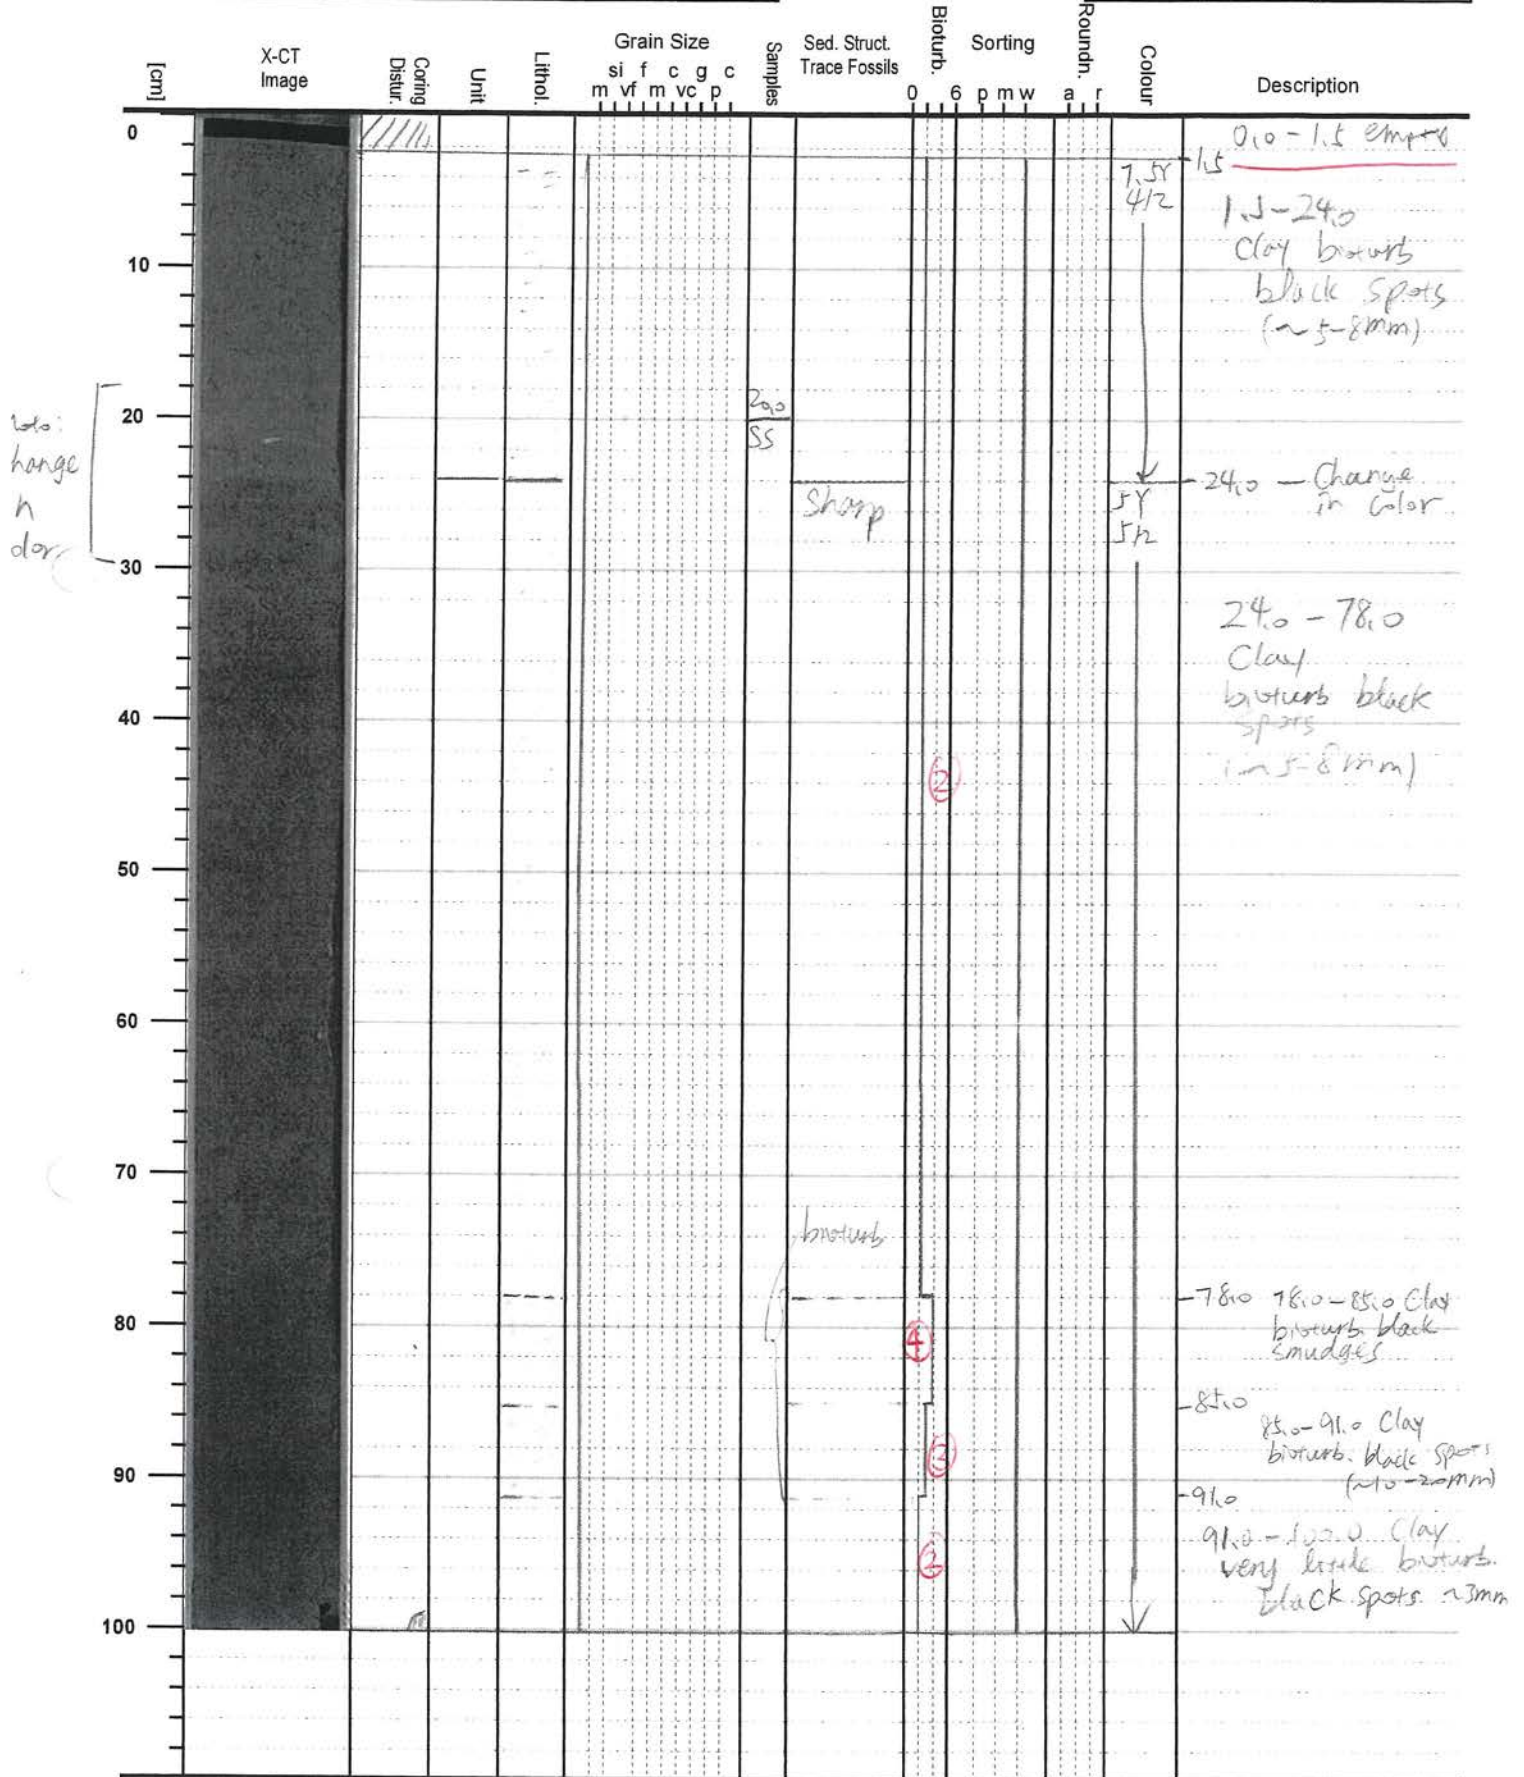 [cm]
X-CT
Image
Coring
Distur.
Unit
Lithol.
Grain Size
si f c g c
m vf m vc p
Samples
Sed. Struct.
Trace Fossils
Bioturb.
0 6
Sorting
p m w
Roundn.
a r
Colour
Description
0
10
20
30
40
50
60
70
80
90
100
hange
20,0
SS
Sharp
bioturb
2
4
3
2
7.5Y
4/2
5Y
5/2
1.5
0,0 - 1.5 empty
1.5-24.0
Clay bioturb
black spots
(~5-8mm)
24,0 — Change
in Color
24.0 - 78.0
Clay
bioturb black
spots
(~5-8mm)
78.0 78.0-85.0 Clay
bioturb. black
smudges
85.0
85.0-91.0 Clay
bioturb. black spots
(~10-20mm)
91.0
91.0-100.0 Clay
very little bioturb.
black spots ~3mm